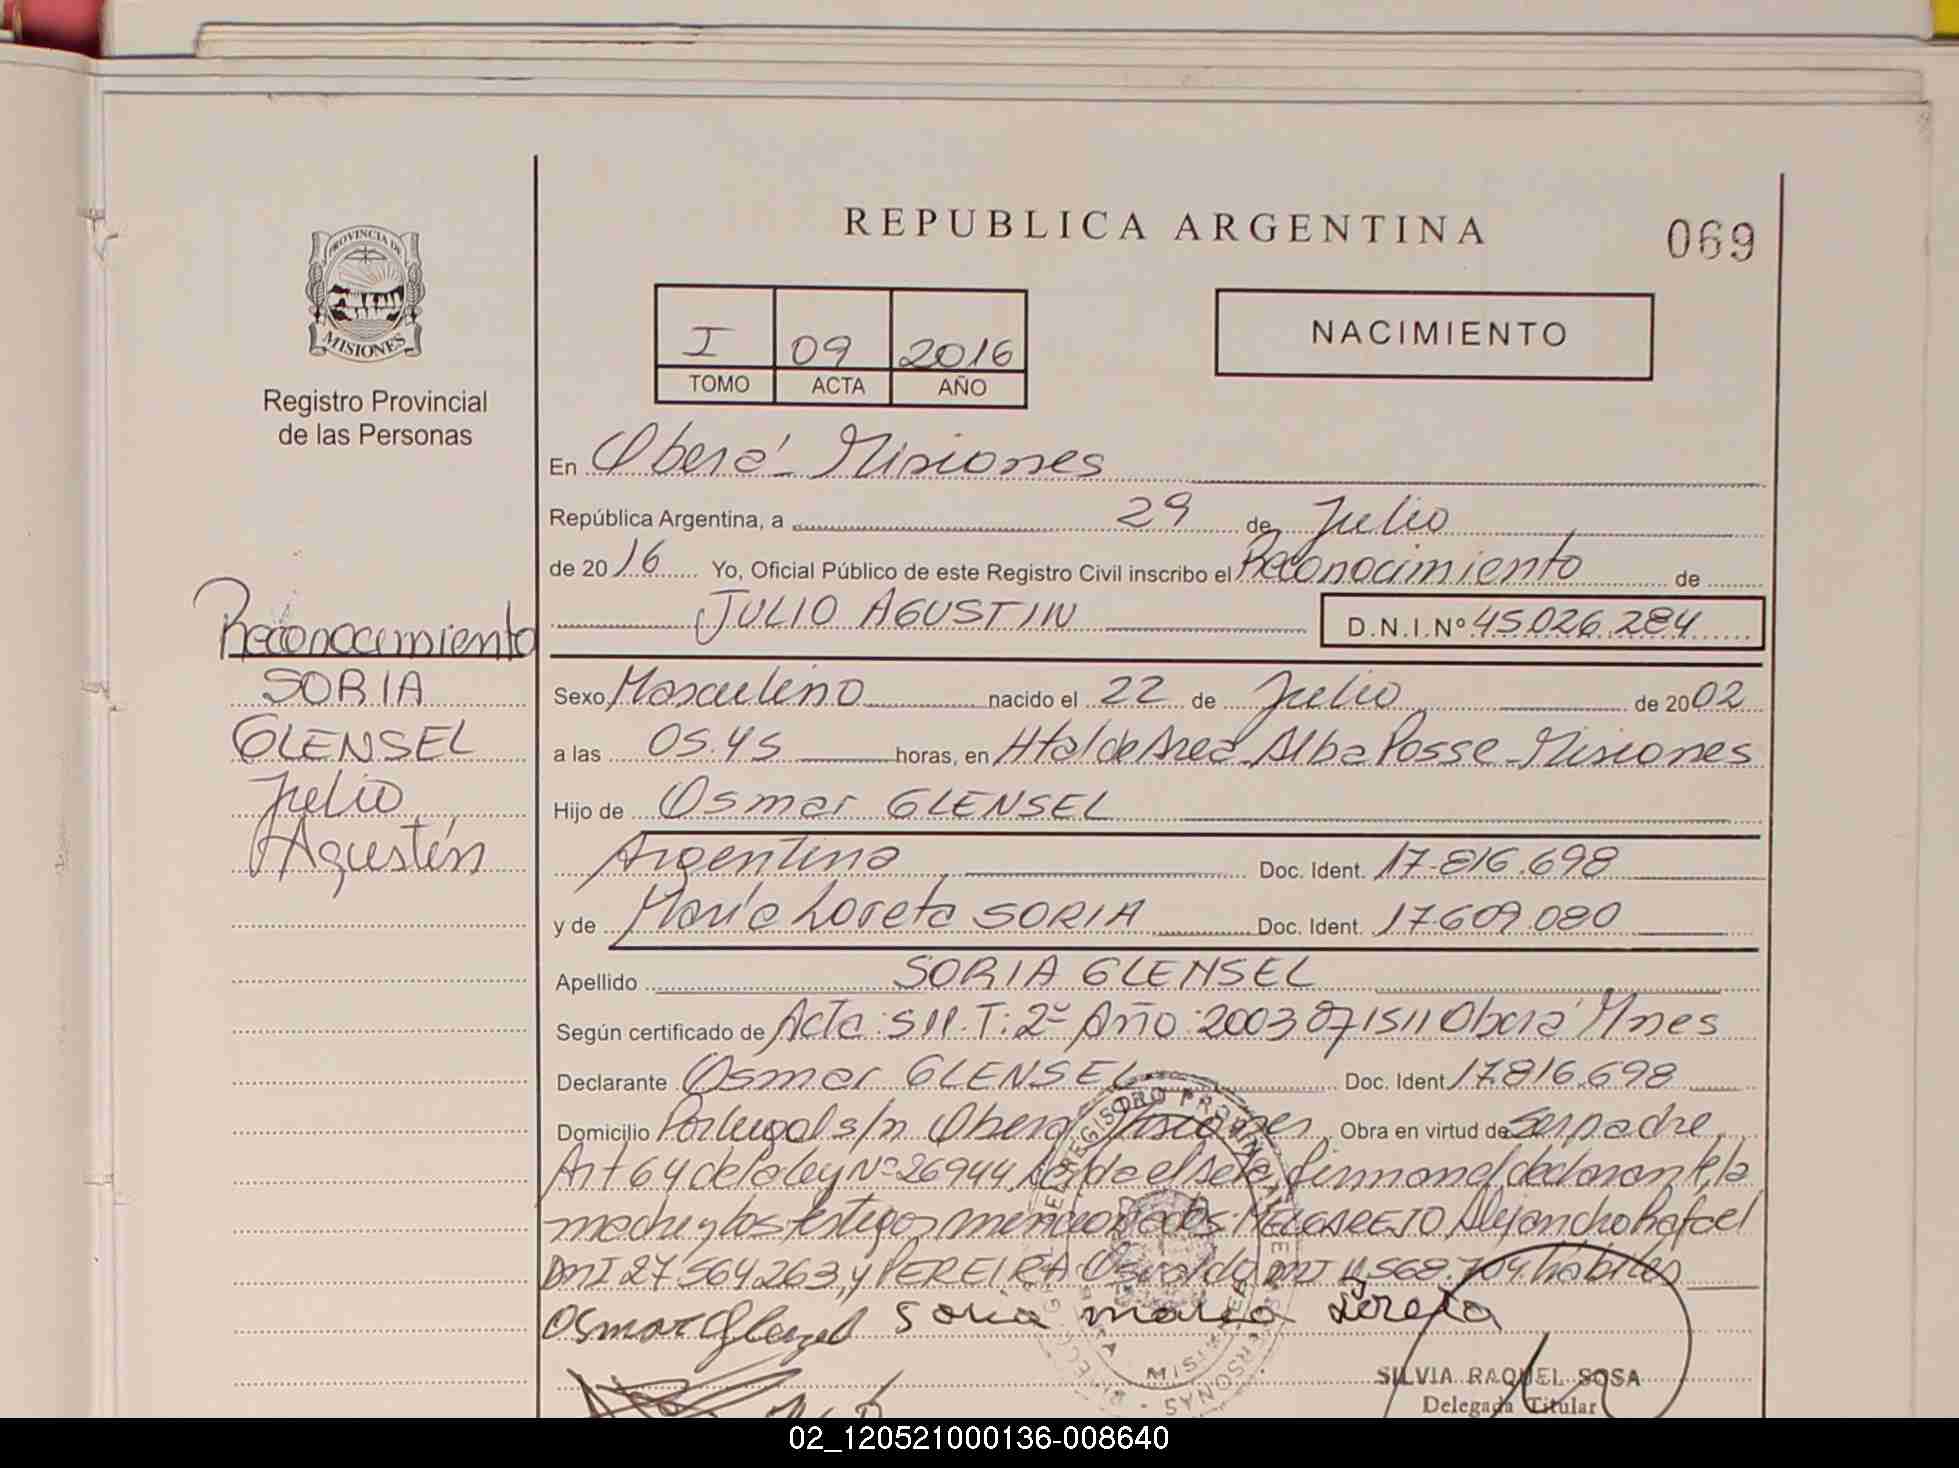 REPUBLICA ARGENTINA
069
PROVINCIA DE
MISIONES
Registro Provincial
de las Personas
I 09 2016
TOMO ACTA AÑO
NACIMIENTO
En Oberá - Misiones
República Argentina, a 29 de Julio
de 2016 Yo, Oficial Público de este Registro Civil inscribo el Reconocimiento de
JULIO AGUSTIN D.N.I.Nº 45.026.284
Reconocimiento
SORIA
GLENSEL
Julio
Agustín
Sexo Masculino nacido el 22 de Julio de 2002
a las 05.45 horas, en Htal de Area Alba Posse - Misiones
Hijo de Osmar GLENSEL
Argentina Doc. Ident. 17.816.698
y de María Loreta SORIA Doc. Ident. 17.609.080
Apellido SORIA GLENSEL
Según certificado de Acta: 511. T: 2º Año: 2003 071511 Oberá Mnes
Declarante Osmar GLENSEL Doc. Ident. 17.816.698
Domicilio Portugal s/n Oberá Misiones Obra en virtud de Ser padre
Art 64 de la ley Nº 26944, Leída el acta, firman el declarante, la
madre y los testigos mencionados: MELGAREJO, Alejandro Rafael
DNI 27.564.263, y PEREIRA Osvaldo DNI hábiles
Osmar Glenzel Soria maria Loreta
SILVIA RAQUEL SOSA
Delegada Titular
02_120521000136-008640